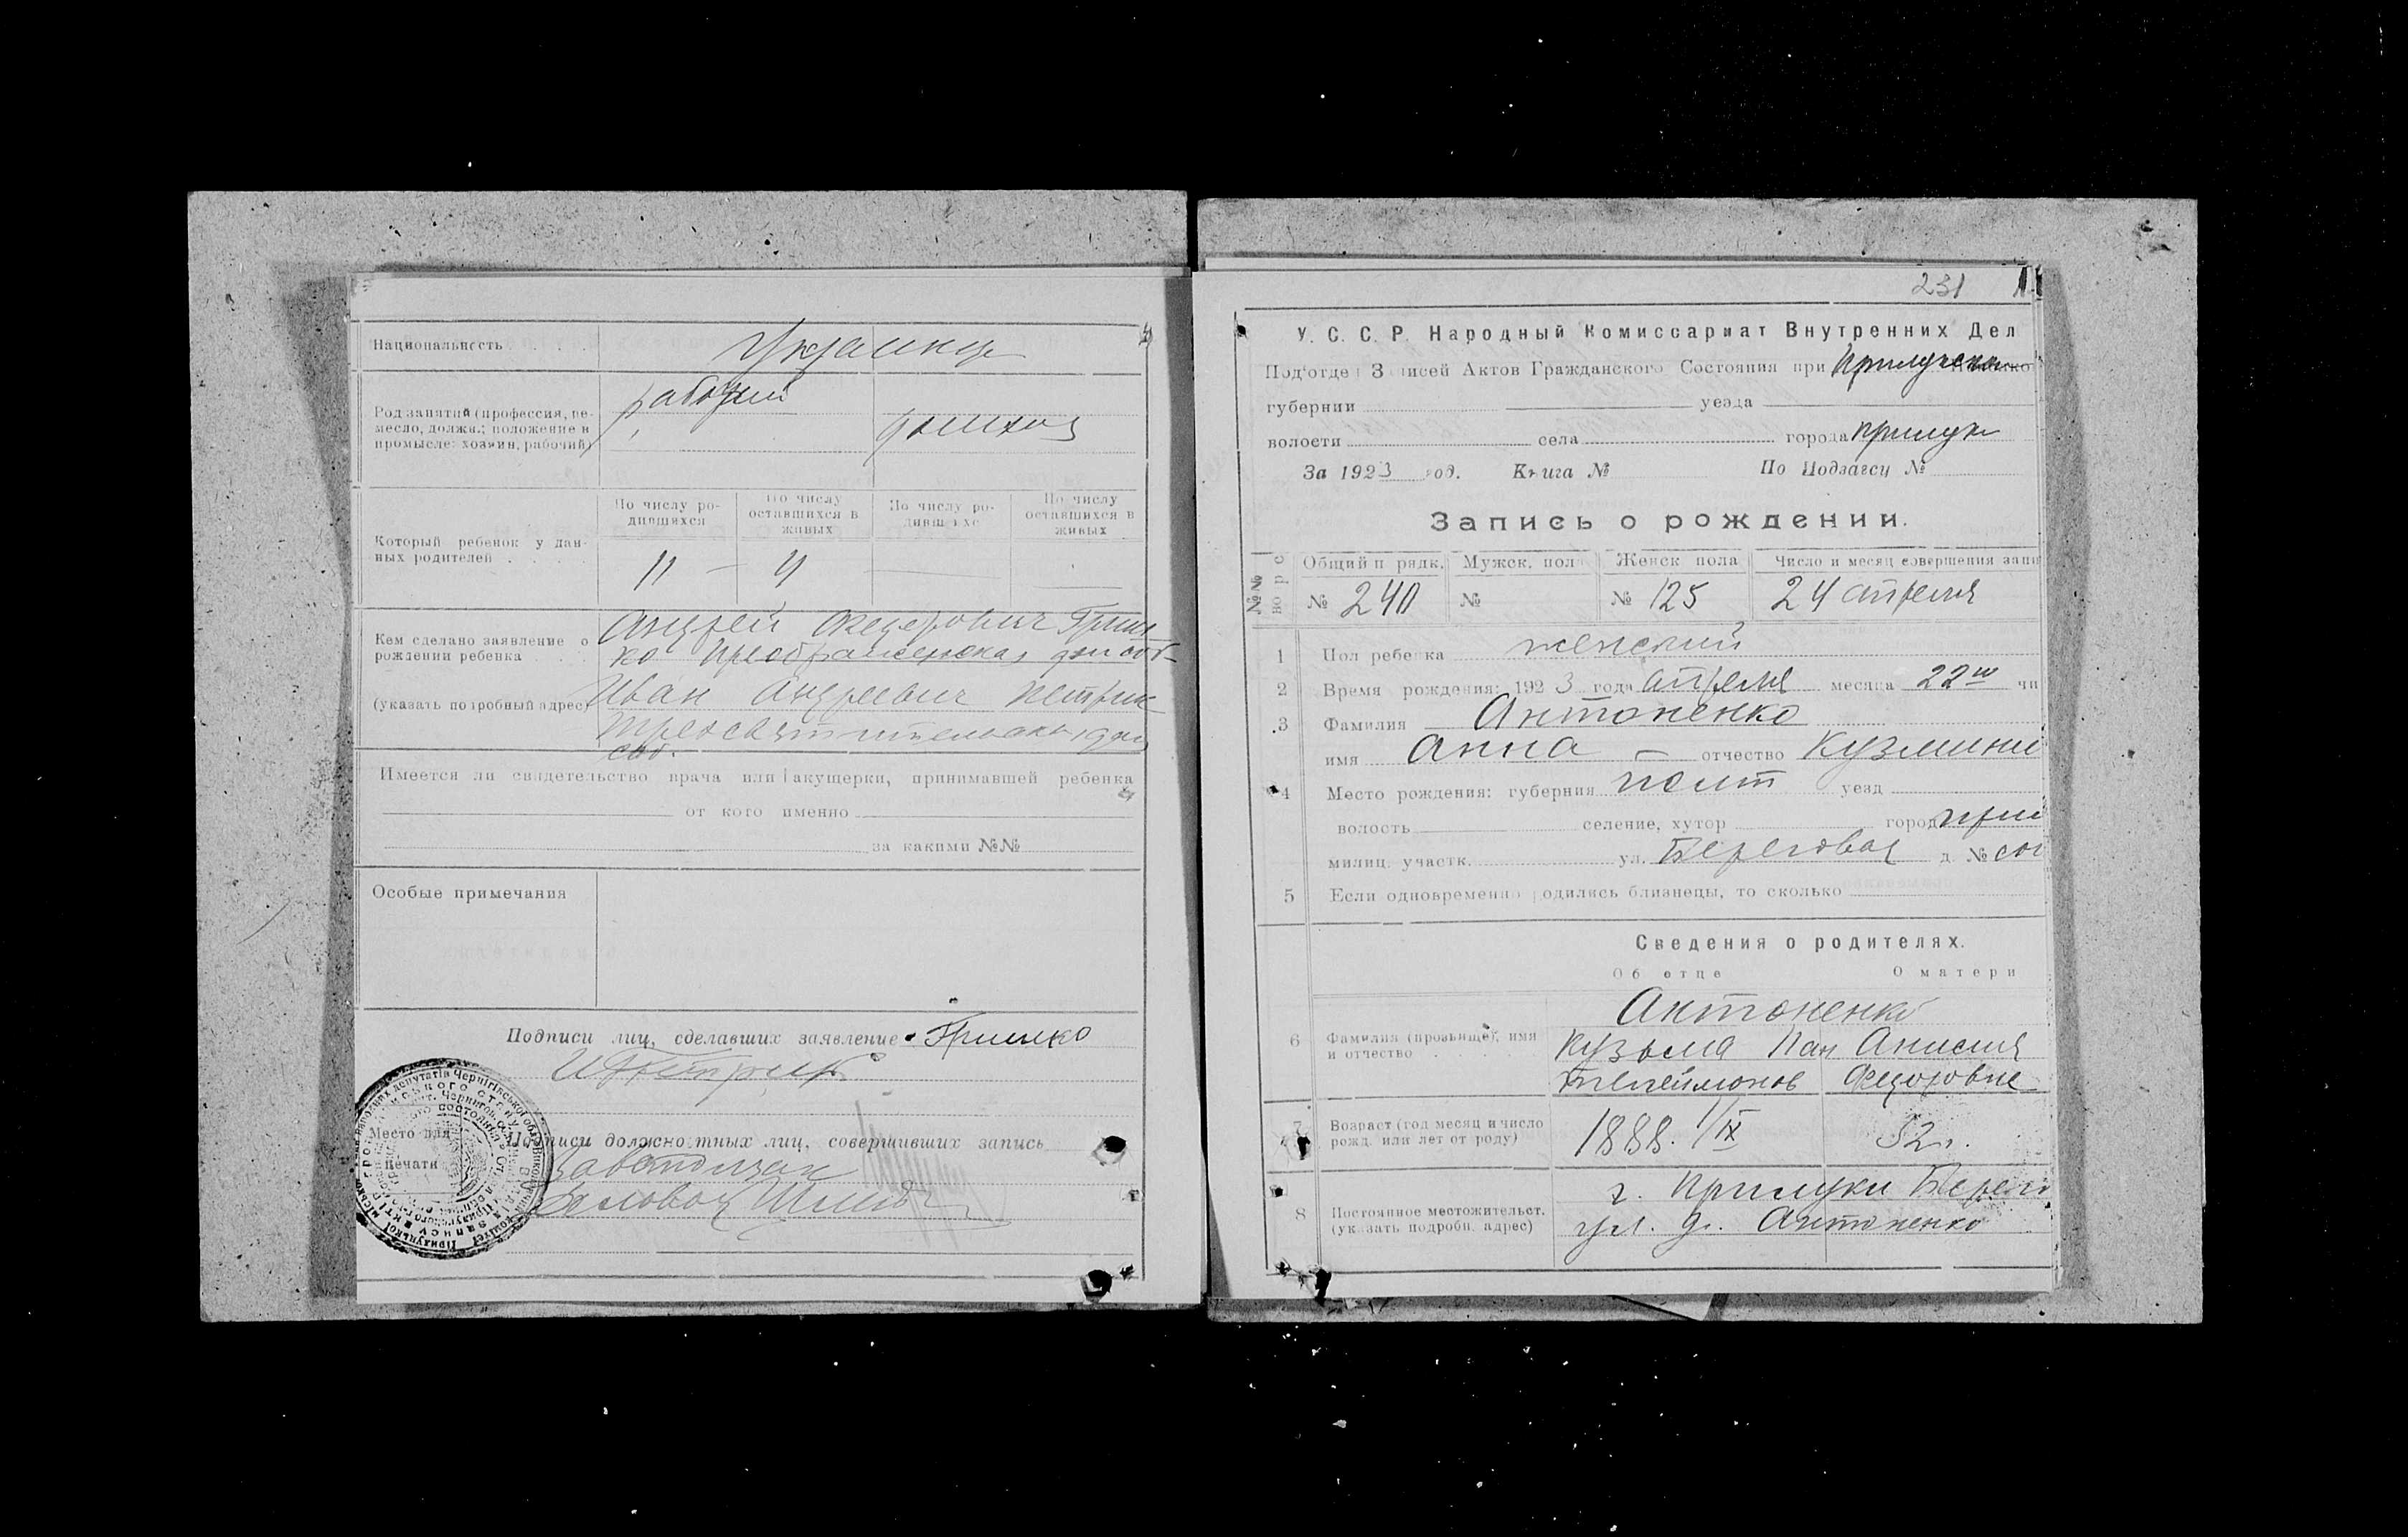 Национальность
Украинцы
Род занятий (профессия, ре-
месло, должн.; положение в
промысле: хозяин, рабочий)
рабочий
домхоз
Который ребенок у дан-
ных родителей
По числу ро-
дившихся
По числу
оставшихся в
живых
По числу ро-
дивш хс
По числу
оставшихся в
живых
11 — 4
Кем сделано заявление о
рождении ребенка
(указать подробный адрес)
Андрей Федорович Грин
ко Преображенская дом соб-
Иван Андреевич Петрик
Трехсвятительская дом
соб.
Имеется ли свидетельство врача или акушерки, принимавшей ребенка
от кого именно
за какими №№
Особые примечания
Подписи лиц, сделавших заявление Гринько
И Петрик
Подписи должностных лиц, совершивших запись
Место для
печати
231
У. С. С. Р. Народный Комиссариат Внутренних Дел
Под'отде Записей Актов Гражданского Состояния при Прилукском
губернии уезда
волости села города Прилуки
За 1923 год. Книга № По Подзагсу №
Запись о рождении.
№№ Общий п рядк. Мужск. пол Женск пола Число и месяц совершения запи
№ 240 № № 125 24 апреля
1 Пол ребенка женский
2 Время рождения: 1923 года апреля месяца 22го чи
3 Фамилия Антоненко
имя Анна — отчество Кузмини
4 Место рождения: губерния Полт уезд
волость селение, хутор город при
милиц. участк. ул. Береговая д. № соб
5 Если одновременно родились близнецы, то сколько
Сведения о родителях.
Об отце О матери
Антоненко
6 Фамилия (прозвище), имя
и отчество
Кузьма Пан Анисия
телеймонов Федоровне
7 Возраст (год месяц и число
рожд. или лет от роду)
1888. 1/IX 32 г.
8 Постоянное местожительст.
(указать подробн. адрес)
г. Прилуки Берего
ул. д. Антоненко